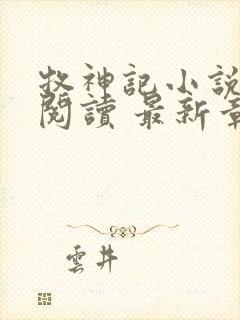 牧神記小說
閱讀 最新章
雲井